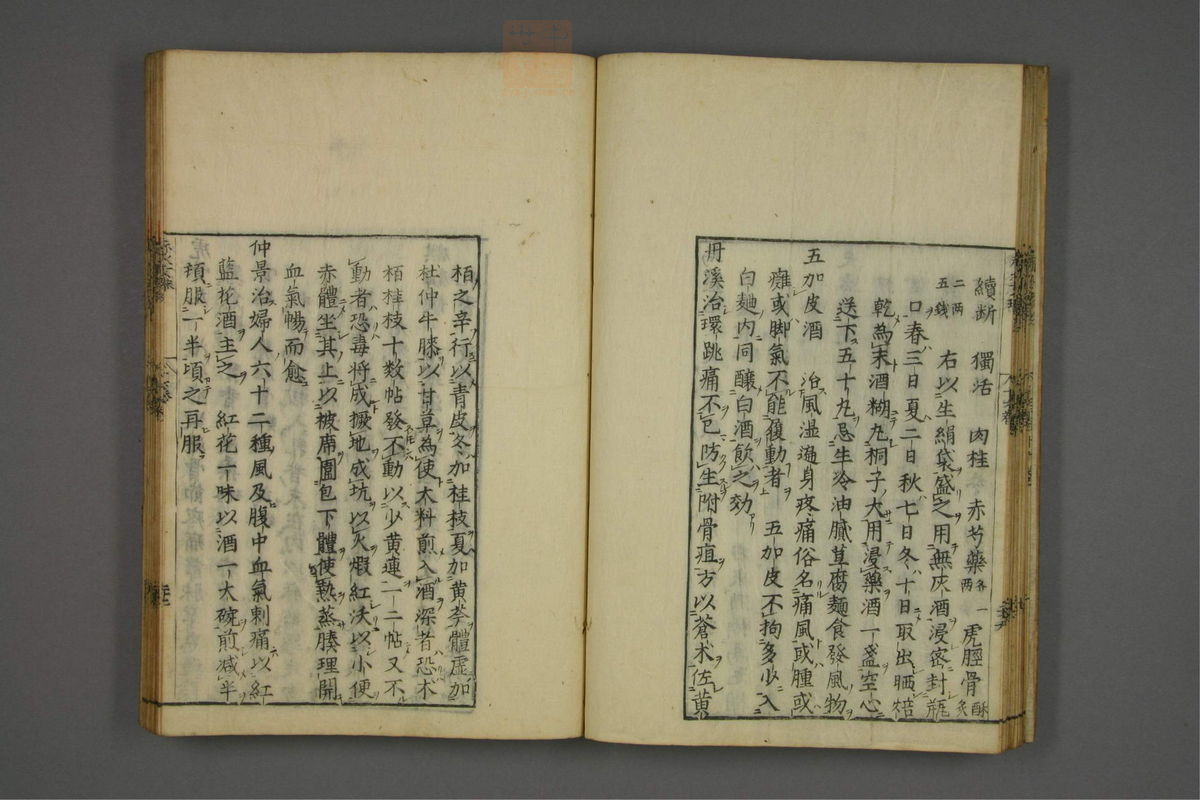 續断　獨活　肉桂　赤芍藥各一兩　虎脛骨酥炙
二两五錢　右以生絹袋盛之用無灰酒浸密封瓶
口春三日夏二日秋七日冬十日取出晒焙
乾為末酒糊丸桐子大用浸藥酒一盞空心
送下五十丸忌生冷油膩荳腐麵食發風物
五加皮酒　治風湿遍身疼痛俗名痛風或腫或
癱或脚氣不能履動者　五加皮不拘多少入
白麯内同釀白酒飲之効
丹溪治環跳痛不已防生附骨疽方以蒼术佐黄
栢之辛行以青皮冬加桂枝夏加黄芩體虚加
杜仲牛膝以甘草為使大料煎入酒深者恐术
栢桂枝十数帖發不動以少黄連一二帖又不
動者恐毒将成撅地成坑以火煆紅沃以小便
赤體坐其上以被席圍包下體使熱蒸腠理開
血氣暢而愈
仲景治婦人六十二種風及腹中血氣刺痛以紅
藍花酒主之　紅花一味以酒一大碗煎减半
頓服一半頃之再服